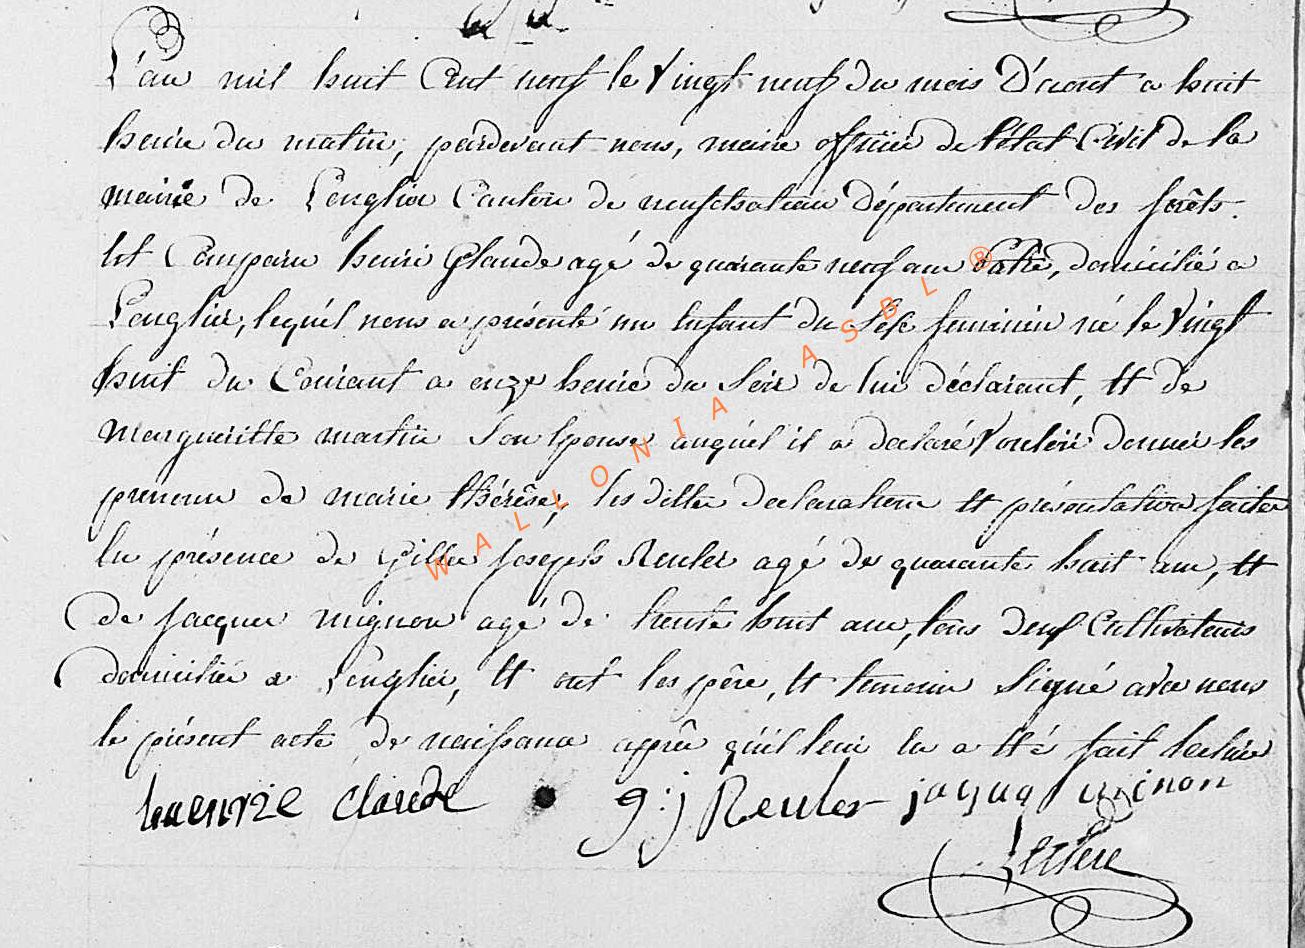 L'an mil huit Cent neuf le Vingt neuf du mois D'aout a huit
heure du matin, pardevant nous, maire officier de l'état Civil de la
mairie de Longlier Canton de neufchateau Département des forêts.
Est Comparu henri Glaude agé de quarante neuf ans , domicilié a
Longlier, lequel nous a présenté un Enfant du Sexe feminin né le Vingt
huit du Courant a onze heure du Soir de lui déclarant, et de
Margueritte martin Son Epouse auquel il a declaré Vouloir donner les
prenoms de marie thérêse, les dittes declarations et présentation faites
En présence de Gilles Joseph Reuler agé de quarante huit ans, et
de Jacques mignon agé de trente huit ans, tous deux Cultivateurs
domiciliés a Longlier, Et ont les père, et temoins Signé avec nous
le présent acte de naissance après qu'il leur en a été fait lecture
haenrie claude g: j Reuler jaquq minon
WALLONIA ASBL ®